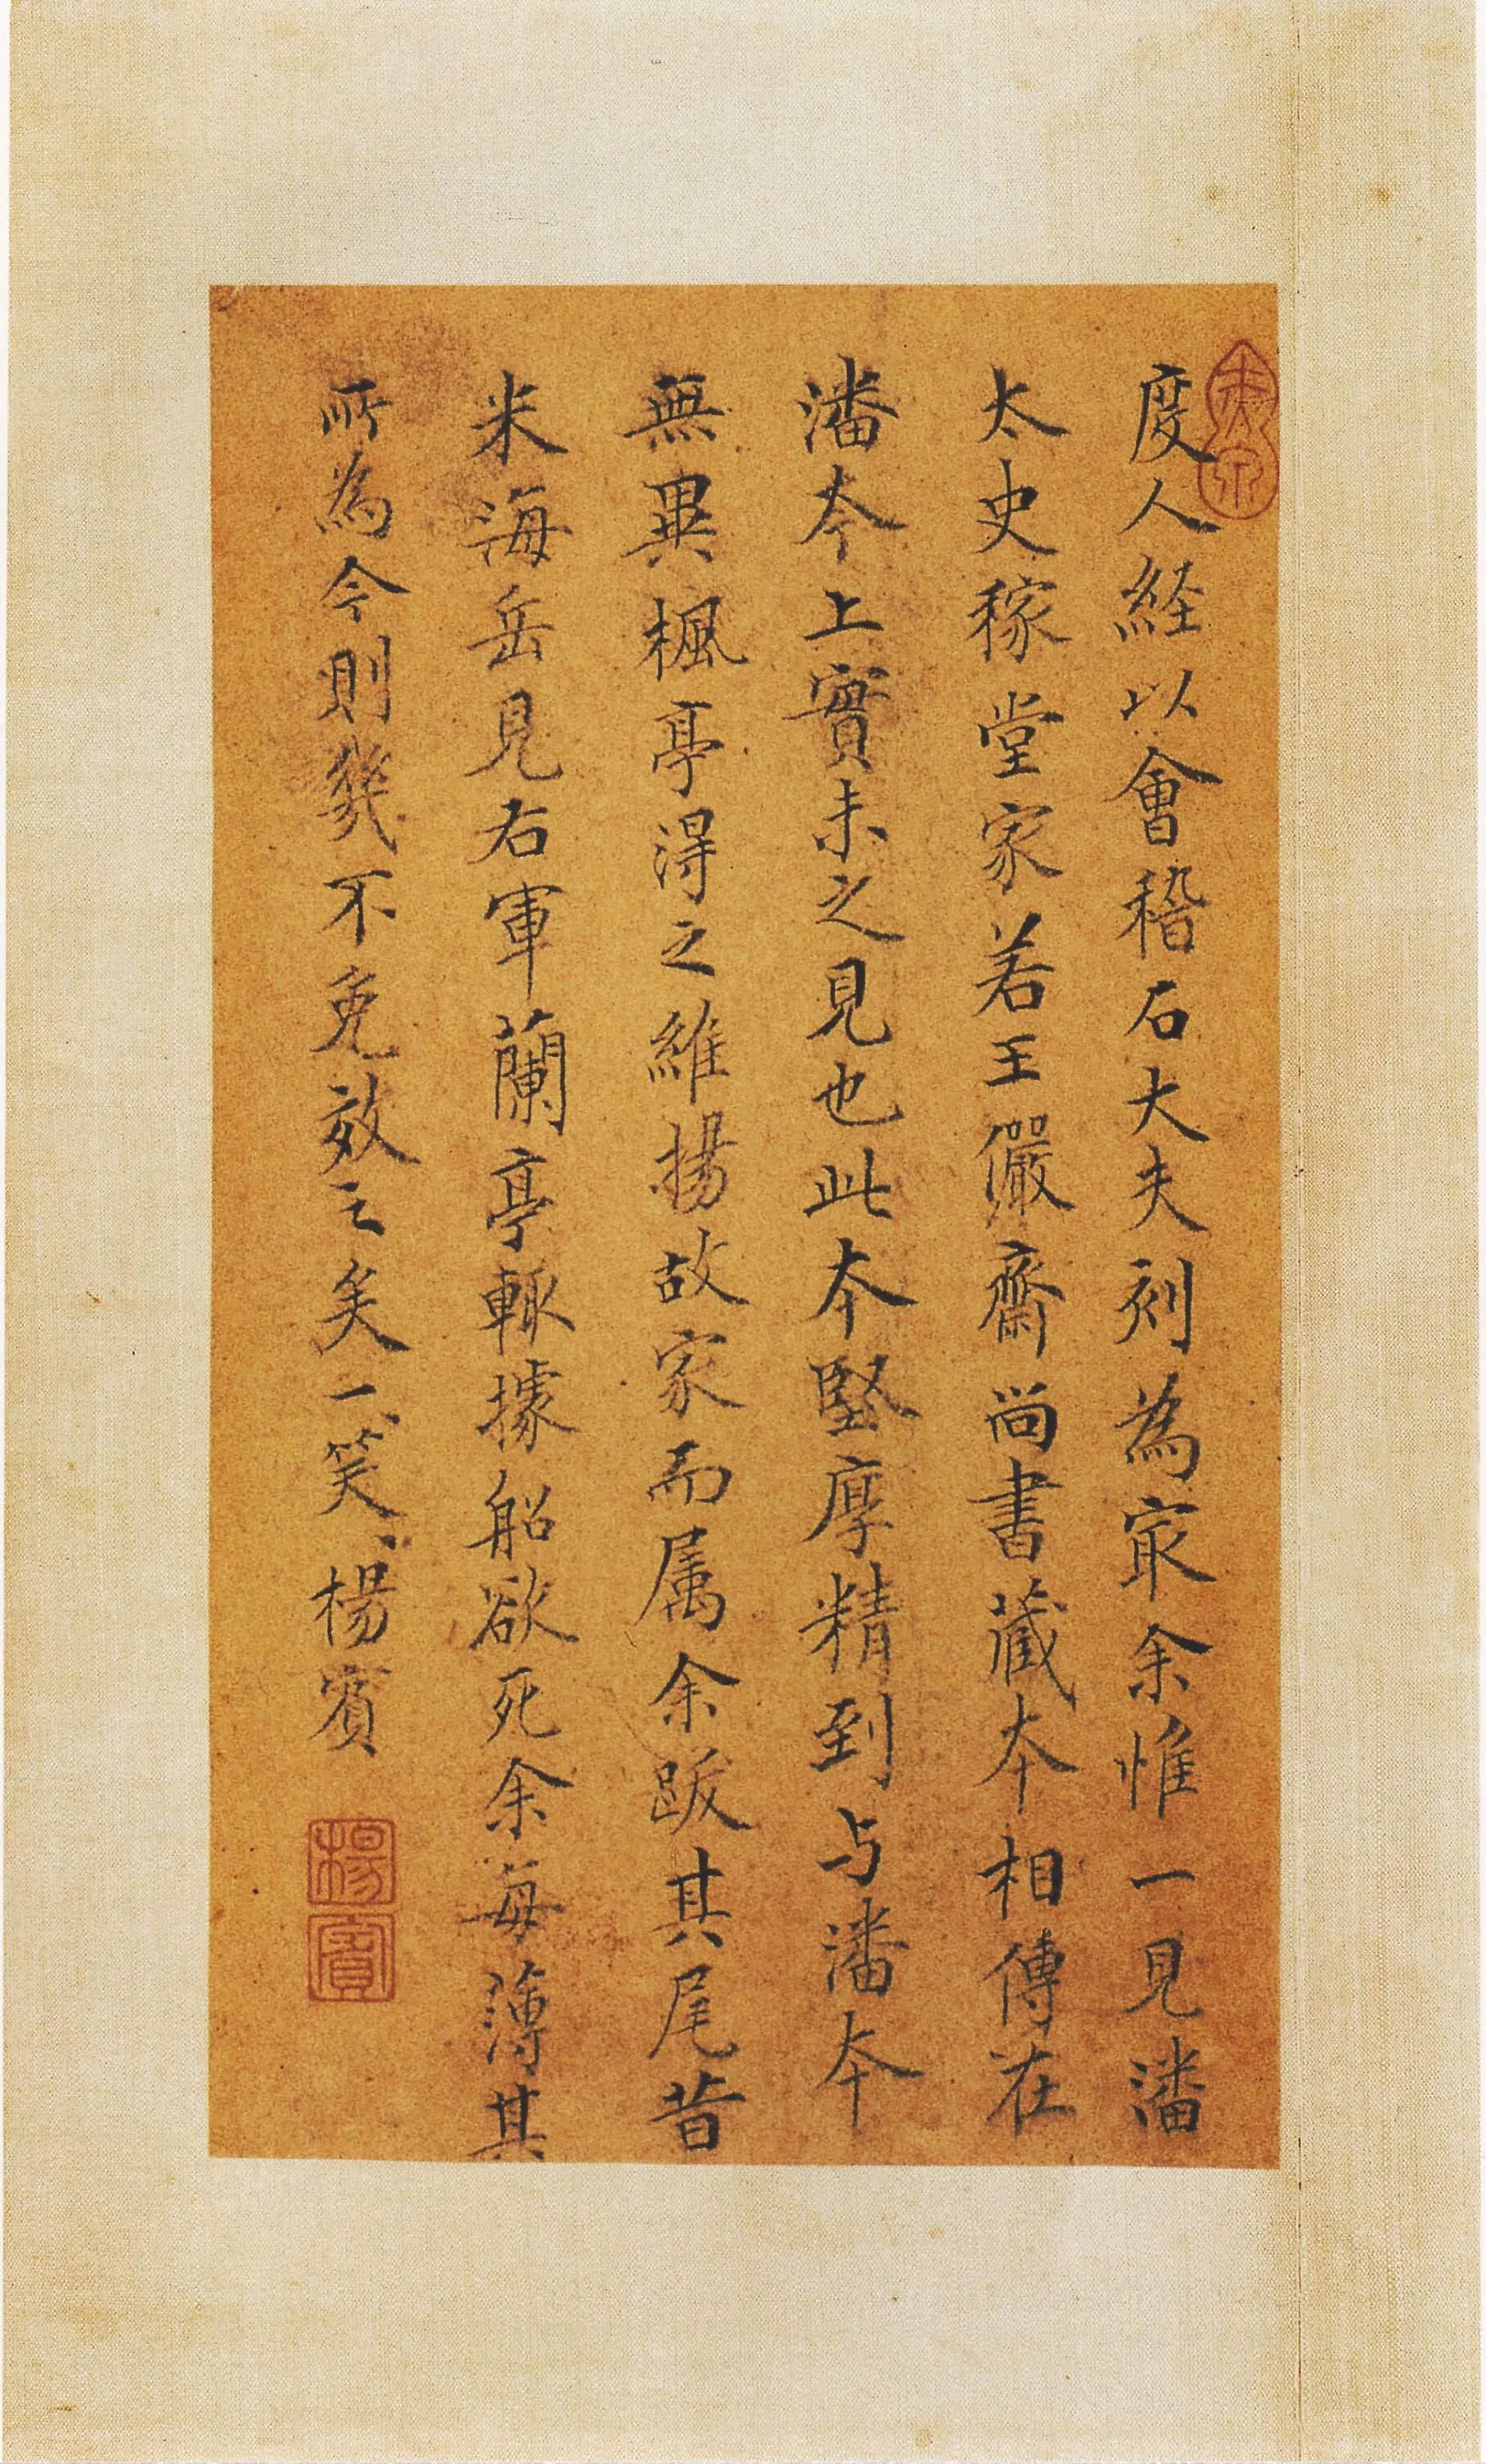 度人經以會稽石大夫刻為冣余惟一見潘
太史稼堂家若王儼齋尚書藏本相傳在
潘本上實未之見也此本堅厚精到与潘本
無異楓亭得之維揚故家而属余跋其尾昔
米海岳見右軍蘭亭輙據船欲死余每薄其
所為今則幾不免效之矣一笑一笑楊賓
楊賓